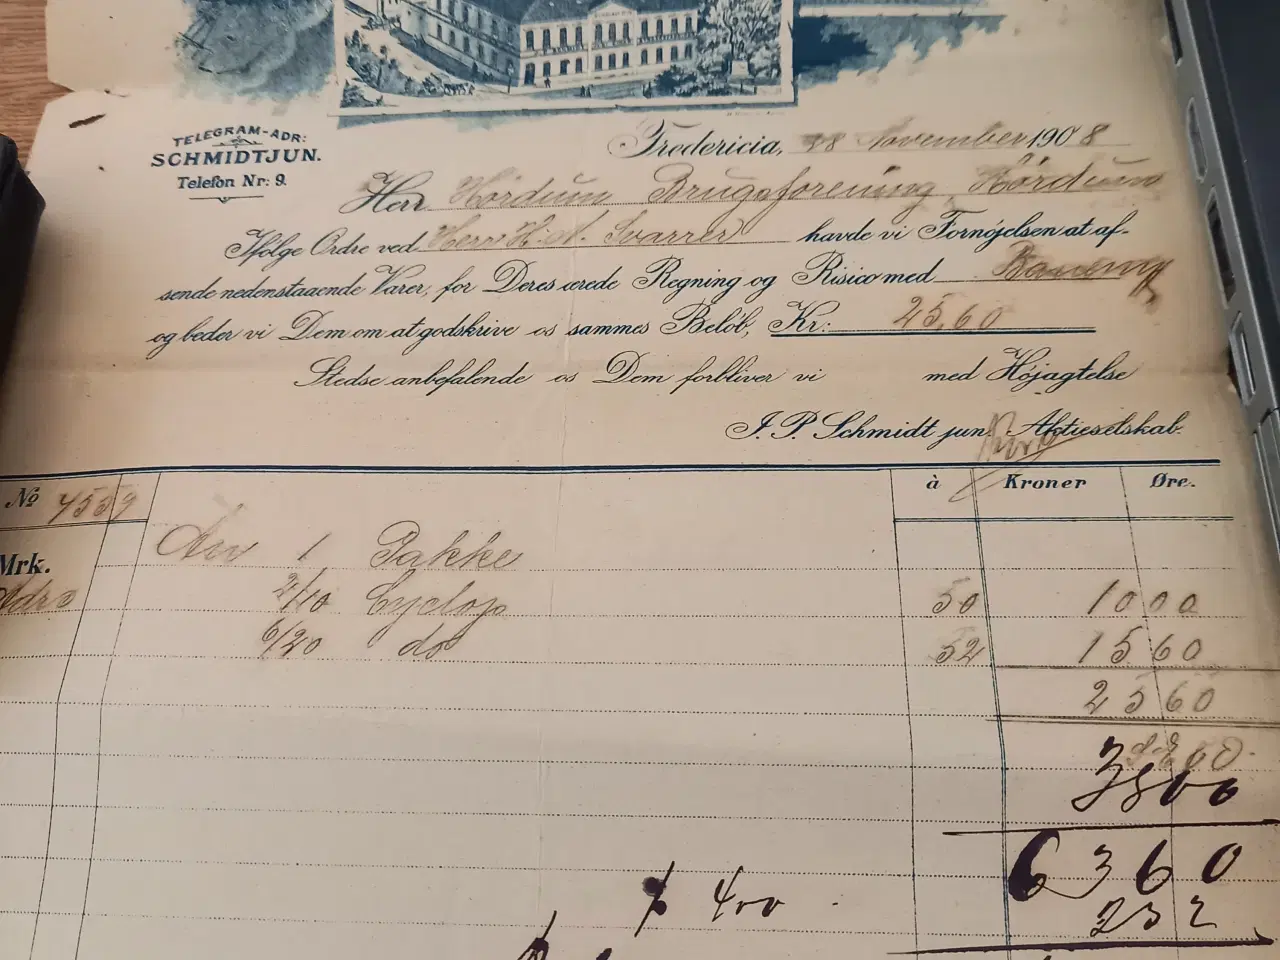 TELEGRAM-ADR:
SCHMIDTJUN.
Telefon Nr: 9.
Fredericia, 28 November 1908
Herr Hördum Brugsforening Hördum
Ifølge Ordre ved Herr H. A. Svarrer havde vi Fornøjelsen at af-
sende nedenstaaende Varer, for Deres ærede Regning og Risico med
og beder vi Dem om at godskrive os sammes Beløb, Kr: 25,60
Stedse anbefalende os Dem forbliver vi med Højagtelse
J. P. Schmidt jun. Aktieselskab.
No 4559 à Kroner Øre.
Mrk. 1 Pakke
Adrs 2/10 Cyclop 50 10 00
6/20 do 52 15 60
25 60
38 00
63 60
400
2 32